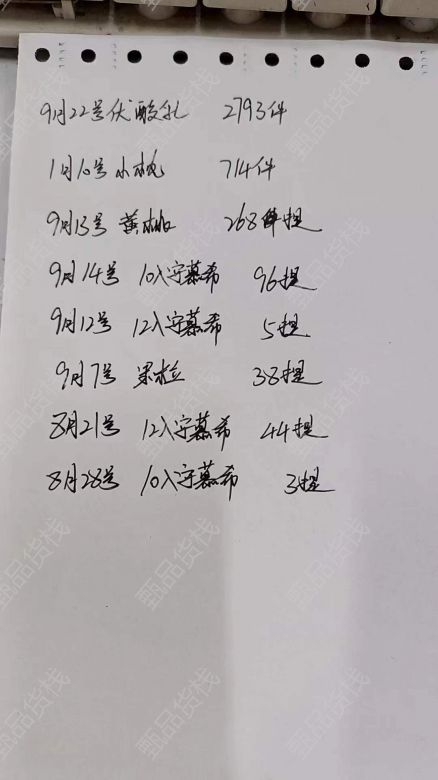 9月22号优酸乳 2793件
1月10号小桃 714件
9月13号 黄桃 268提
9月14号 10入安慕希 96提
9月12号 12入安慕希 5提
9月7号 果粒 38提
8月21号 12入安慕希 44提
8月28号 10入安慕希 3提
甄品货栈